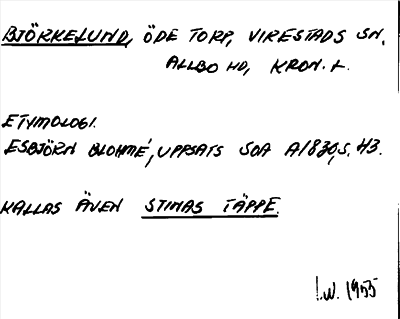 BJÖRKELUND, ÖDE TORP, VIRESTADS SN,
ALLBO HD, KRON. L.
ETYMOLOGI.
ESBJÖRN BLOHMÉ, UPPSATS SOA A1830, S. 43.
KALLAS ÄVEN STINAS TÄPPE.
I.W. 1955